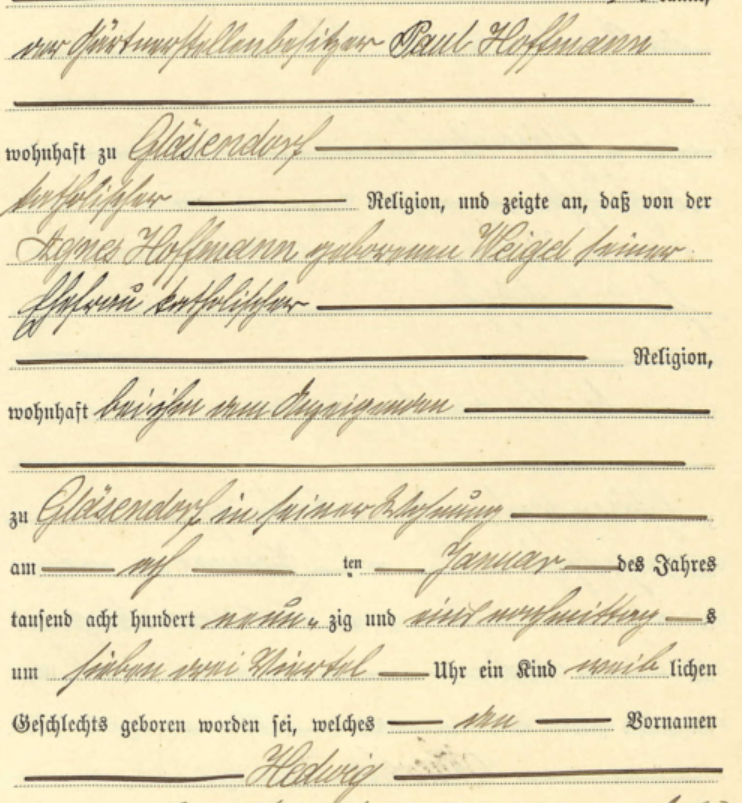 der Gärtnerstellenbesitzer Paul Hoffmann
wohnhaft zu Gläsendorf
katholischer Religion, und zeigte an, daß von der
Agnes Hoffmann geborenen Weigel seiner
Ehefrau katholischer
Religion,
wohnhaft bei ihm dem Anzeigenden
zu Gläsendorf in seiner Wohnung
am ten Januar des Jahres
tausend acht hundert neun„zig und eins vormittags
um sieben drei Viertel Uhr ein Kind weiblichen
Geschlechts geboren worden sei, welches den Vornamen
Hedwig